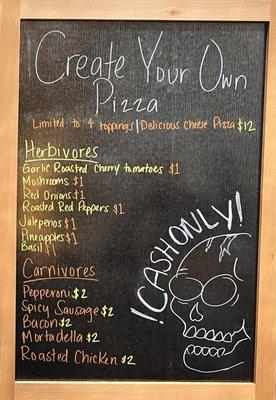 Create Your Own
Pizza
Limited to 4 toppings | Delicious Cheese Pizza $12
Herbivores
Garlic Roasted Cherry tomatoes $1
Mushrooms $1
Red Onions $1
Roasted Red Peppers $1
Jalepeños $1
Pineapples $1
Basil $1
Carnivores
Pepperoni $2
Spicy Sausage $2
Bacon $2
Mortadella $2
Roasted Chicken $2
! CASH ONLY!